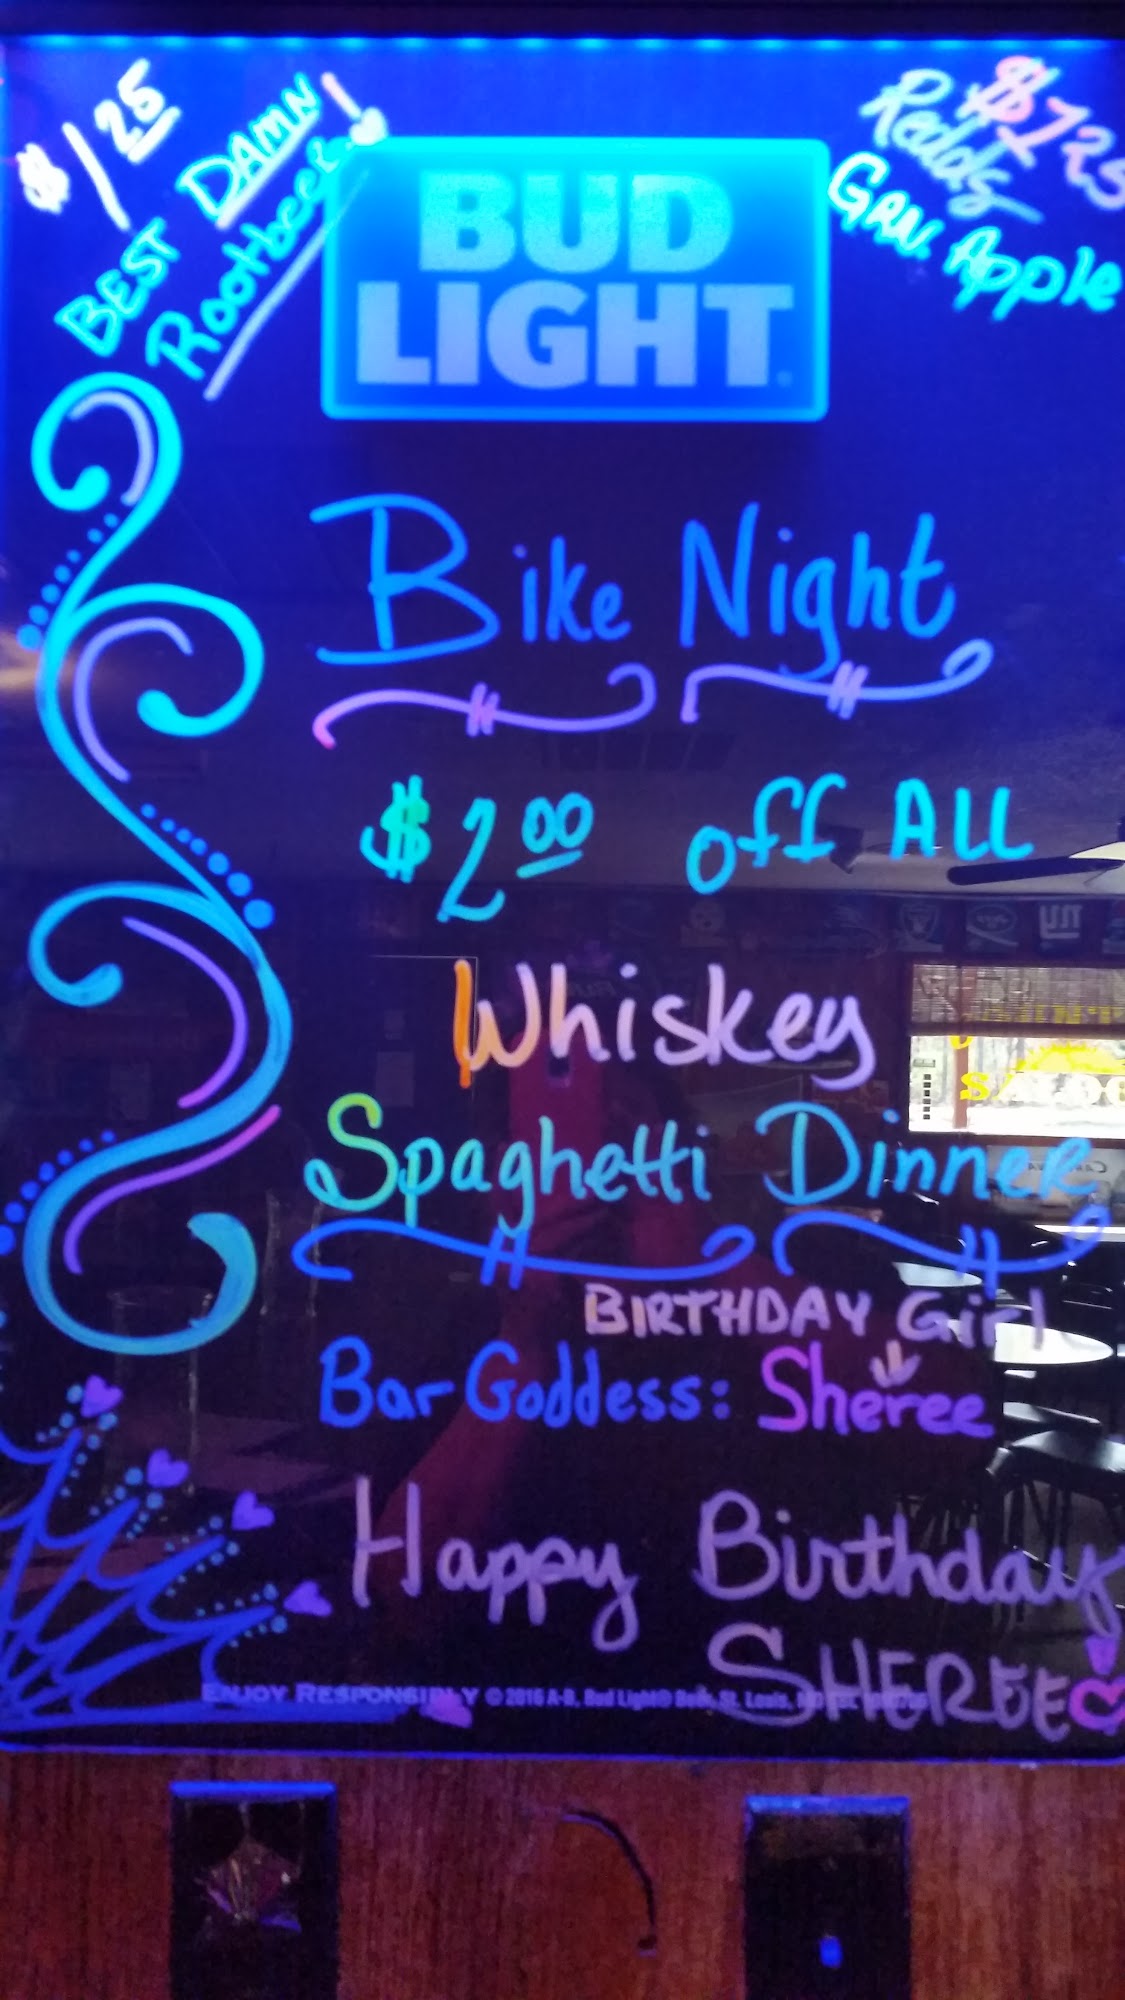 $1 25
BEST DAMN!
Rootbeer
$1 25
Redds
GRN. Apple
BUD
LIGHT
Bike Night
$2 00 off ALL
Whiskey
Spaghetti Dinner
BIRTHDAY Girl
Bar Goddess: Sheree
Happy Birthday
SHEREE
ENJOY RESPONSIBLY © 2016 A-B, Bud Light® Beer, St. Louis, MO